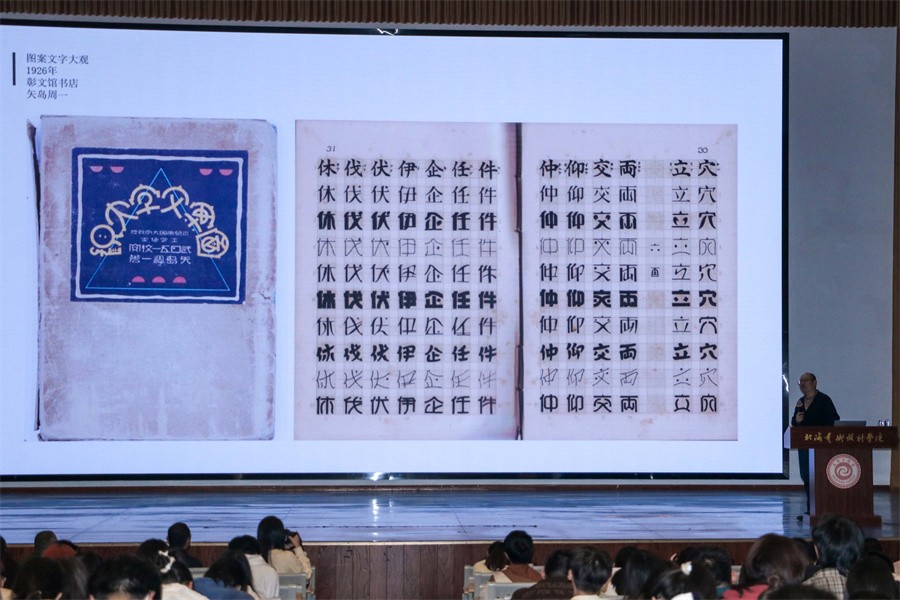 图案文字大观
1926年
彰文馆书店
矢岛周一
図案文字大観
工学博士
武田五一校閲
矢島周一著
31
休伐伏伊企任件
休伐伏伊企任件
休伐伏伊企任件
休伐伏伊企任件
休伐伏伊企任件
休伐伏伊企任件
休伐伏伊企任件
休伐伏伊企任件
休伐伏伊企任件
休伐伏伊企任件
30
仲仰交両 立穴
仲仰交両 立穴
仲仰交両 立穴
仲仰交両 六 立穴
仲仰交両 画 立穴
仲仰交両 立穴
仲仰交両 立穴
仲仰交両 立穴
仲仰交両 立穴
仲仰交両 立穴
北海艺术设计学院